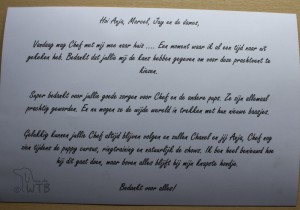 Hoi Anja, Marcel, Jay en de dames,
Vandaag mag Chef met mij mee naar huis .... Een moment waar ik al een tijd naar uit
gekeken heb. Bedankt dat jullie mij de kans hebben gegeven om voor deze prachtvent te
kiezen.
Super bedankt voor jullie goede zorgen voor Chef en de andere pups. Ze zijn allemaal
prachtig geworden. En nu mogen ze de wijde wereld in trekken met hun nieuwe baasjes.
Gelukkig kunnen jullie Chef altijd blijven volgen en zullen Chanel en jij Anja, Chef nog
zien tijdens de puppy cursus, ringtraining en natuurlijk de shows. Ik ben heel benieuwd hoe
hij dit gaat doen, maar boven alles blijft hij mijn knapste hondje.
Bedankt voor alles!
WTB